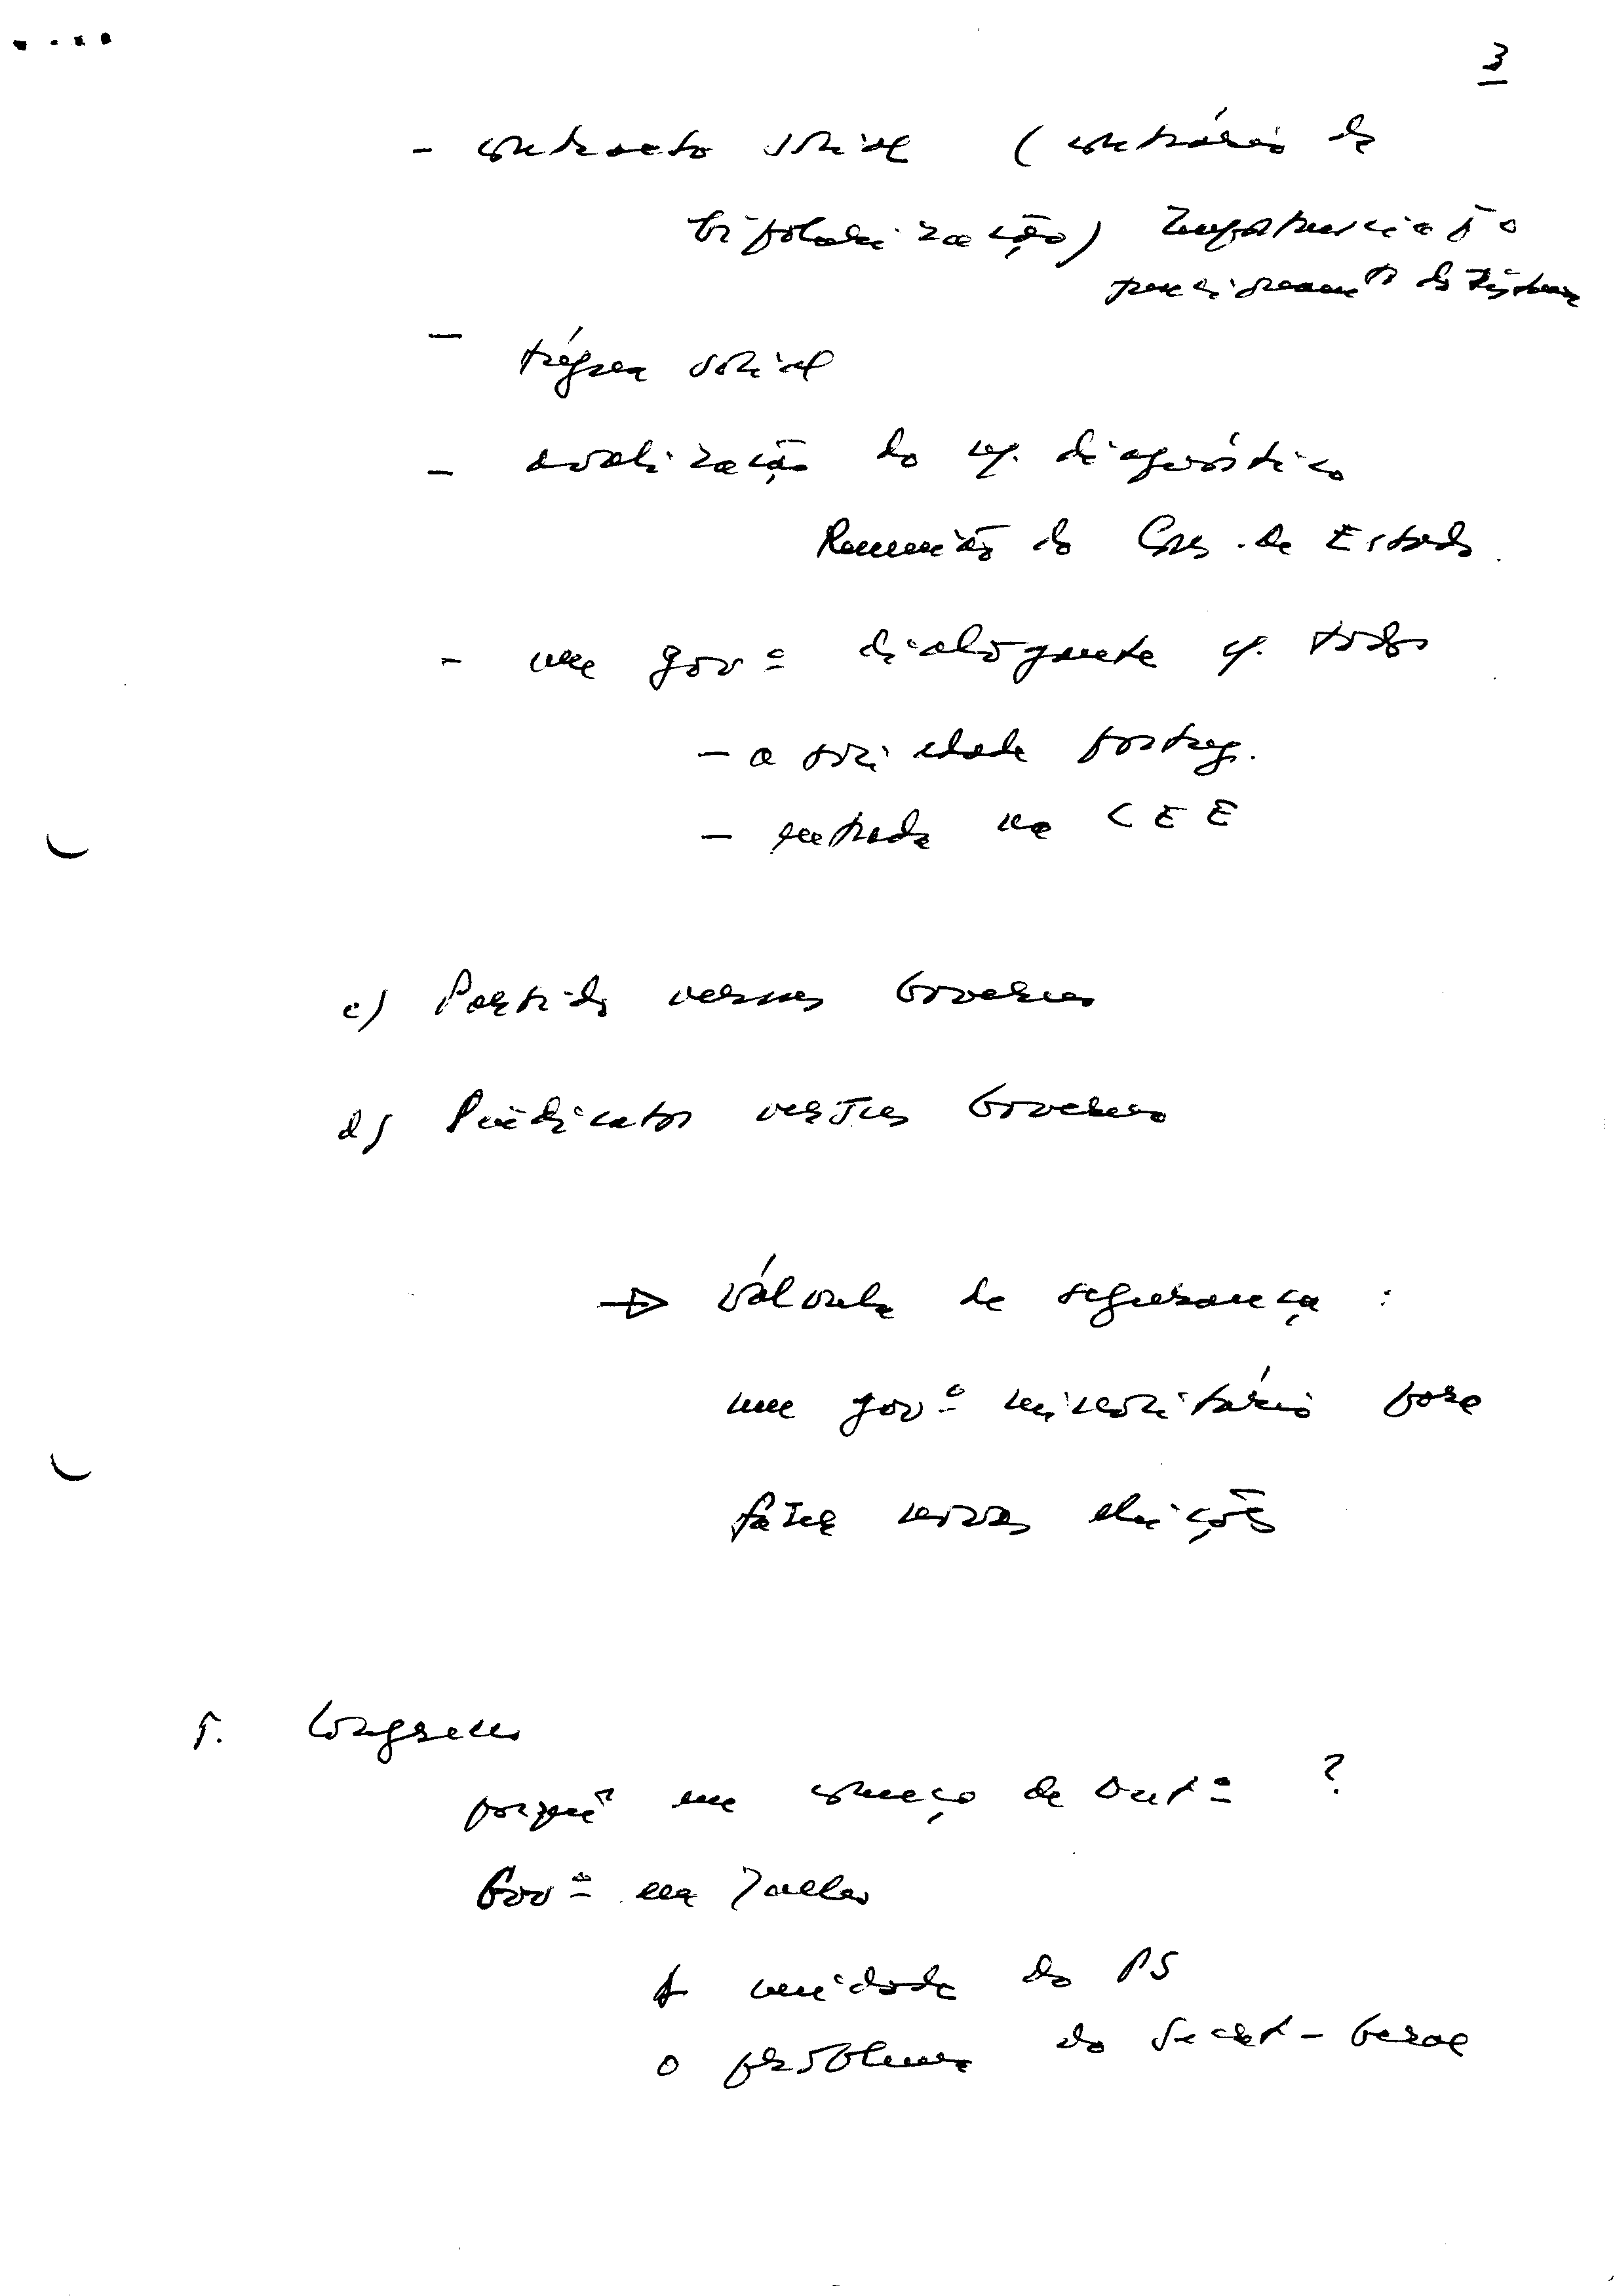 3
- contracto social (contrário da
bipolarização)
funcionamentº do sistema
- trégua social
- avalização do diagnóstico
Reunião do Cons. de Estado.
- um govº dialogante c/. todos
- a sociedade portug.
- entrada na CEE
c) Partido versus Governo
d) Sindicatos versus Governo
→ válvula de segurança :
um govº minoritário para
fazer novas eleições
5. Congresso
porquê em começo de Outº ?
Govº em Julho
A unidade do PS
o problema do Secret-Geral